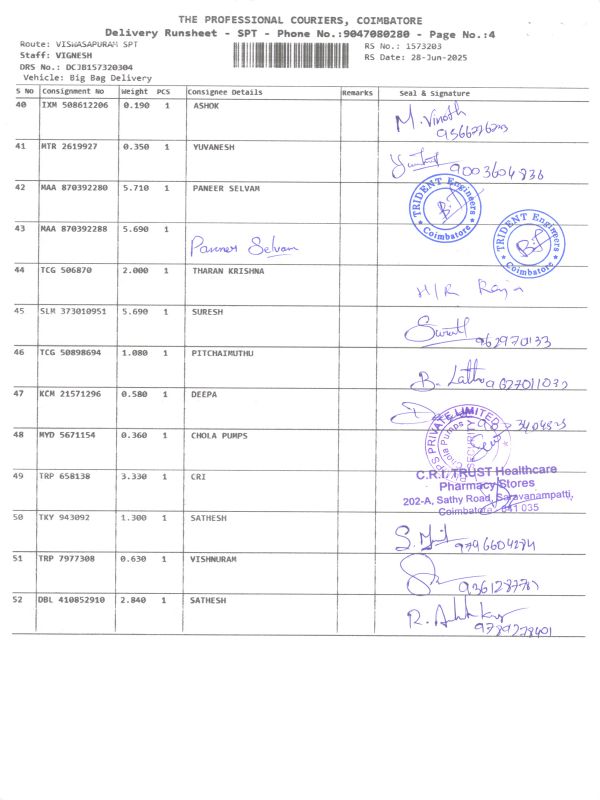 THE PROFESSIONAL COURIERS, COIMBATORE
Delivery Runsheet - SPT - Phone No.:9047080280 - Page No.:4
Route: VISWASAPURAM SPT
RS No.: 1573203
Staff: VIGNESH
RS Date: 28-Jun-2025
DRS No.: DCJB157320304
Vehicle: Big Bag Delivery
S No Consignment No Weight PCS Consignee Details Remarks Seal & Signature
40 IXM 508612206 0.190 1 ASHOK
M. Vinoth
41 MTR 2619927 0.350 1 YUVANESH
9003604836
42 MAA 870392280 5.710 1 PANEER SELVAM
TRIDENT Engineers
Coimbatore
43 MAA 870392288 5.690 1
Panner Selvam
TRIDENT Engineers
Coimbatore
44 TCG 506870 2.000 1 THARAN KRISHNA
H/R Raja
45 SLM 373010951 5.690 1 SURESH
46 TCG 50898694 1.080 1 PITCHAIMUTHU
B. Latha
47 KCM 21571296 0.580 1 DEEPA
48 MYD 5671154 0.360 1 CHOLA PUMPS
PS PRIVATE LIMITED
Chola Pumps
SECURITY
49 TRP 658138 3.330 1 CRI
C.R.I. TRUST Healthcare
Pharmacy Stores
202-A, Sathy Road, Saravanampatti,
Coimbatore - 641 035
50 TKY 943092 1.300 1 SATHESH
51 TRP 7977308 0.630 1 VISHNURAM
52 DBL 410852910 2.840 1 SATHESH
9789228401